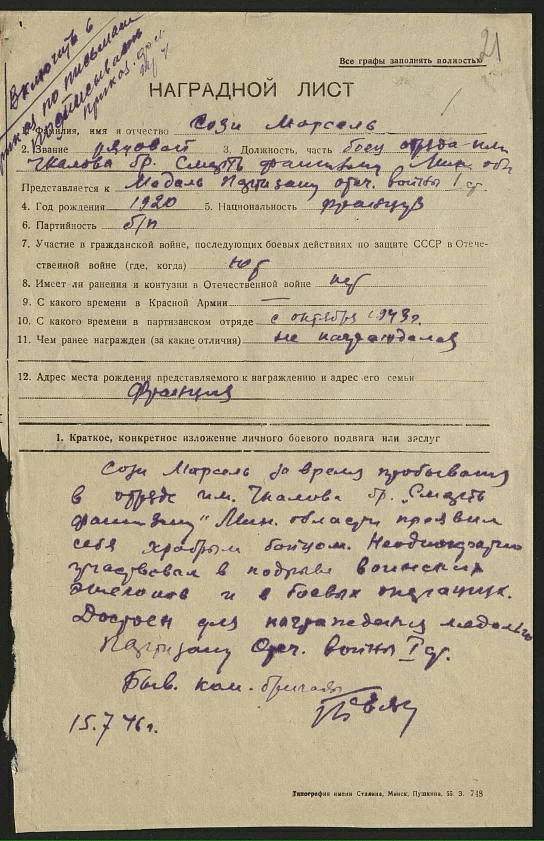 21
Включить в
приказ по письмам
Все графы заполнять полностью
НАГРАДНОЙ ЛИСТ
1. Фамилия, имя и отчество Сози Марсель
2. Звание рядовой 3. Должность, часть боец отряда им.
Чкалова бр. Смерть фашизму Мин. обл.
Представляется к Медаль Партизану отеч. войны I ст.
4. Год рождения 1920 5. Национальность француз
6. Партийность б/п
7. Участие в гражданской войне, последующих боевых действиях по защите СССР в Отече-
ственной войне (где, когда) нет
8. Имеет ли ранения и контузии в Отечественной войне нет
9. С какого времени в Красной Армии —
10. С какого времени в партизанском отряде с октября 1943г.
11. Чем ранее награжден (за какие отличия) не награждался
12. Адрес места рождения представляемого к награждению и адрес его семьи
Франция
1. Краткое, конкретное изложение личного боевого подвига или заслуг
Сози Марсель за время пребывания
в отряде им. Чкалова бр. „Смерть
фашизму" Мин. области проявил
себя храбрым бойцом. Неоднократно
участвовал в подрыве воинских
эшелонов и в боевых операциях.
Достоин для награждения медалью
Партизану Отеч. войны I ст.
Быв. ком. бригады
15.7 46г.
Типография имени Сталина, Минск, Пушкина, 55 З. 748